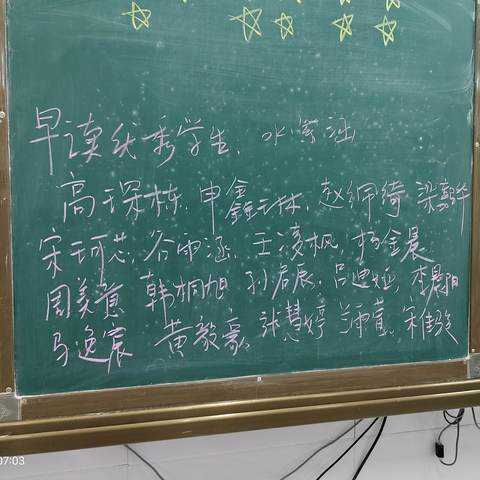 早读优秀学生、水漾涵
高琛栋 申鑫林 赵绵绮 梁毅华
宋珂芯 谷雨涵 王凌枫 杨金晨
周美萱 韩桐旭 孙启宸 吕迪娅 李晨阳
马逸宸 黄毅豪 张慧婷 萱 宋佳骏
07:03